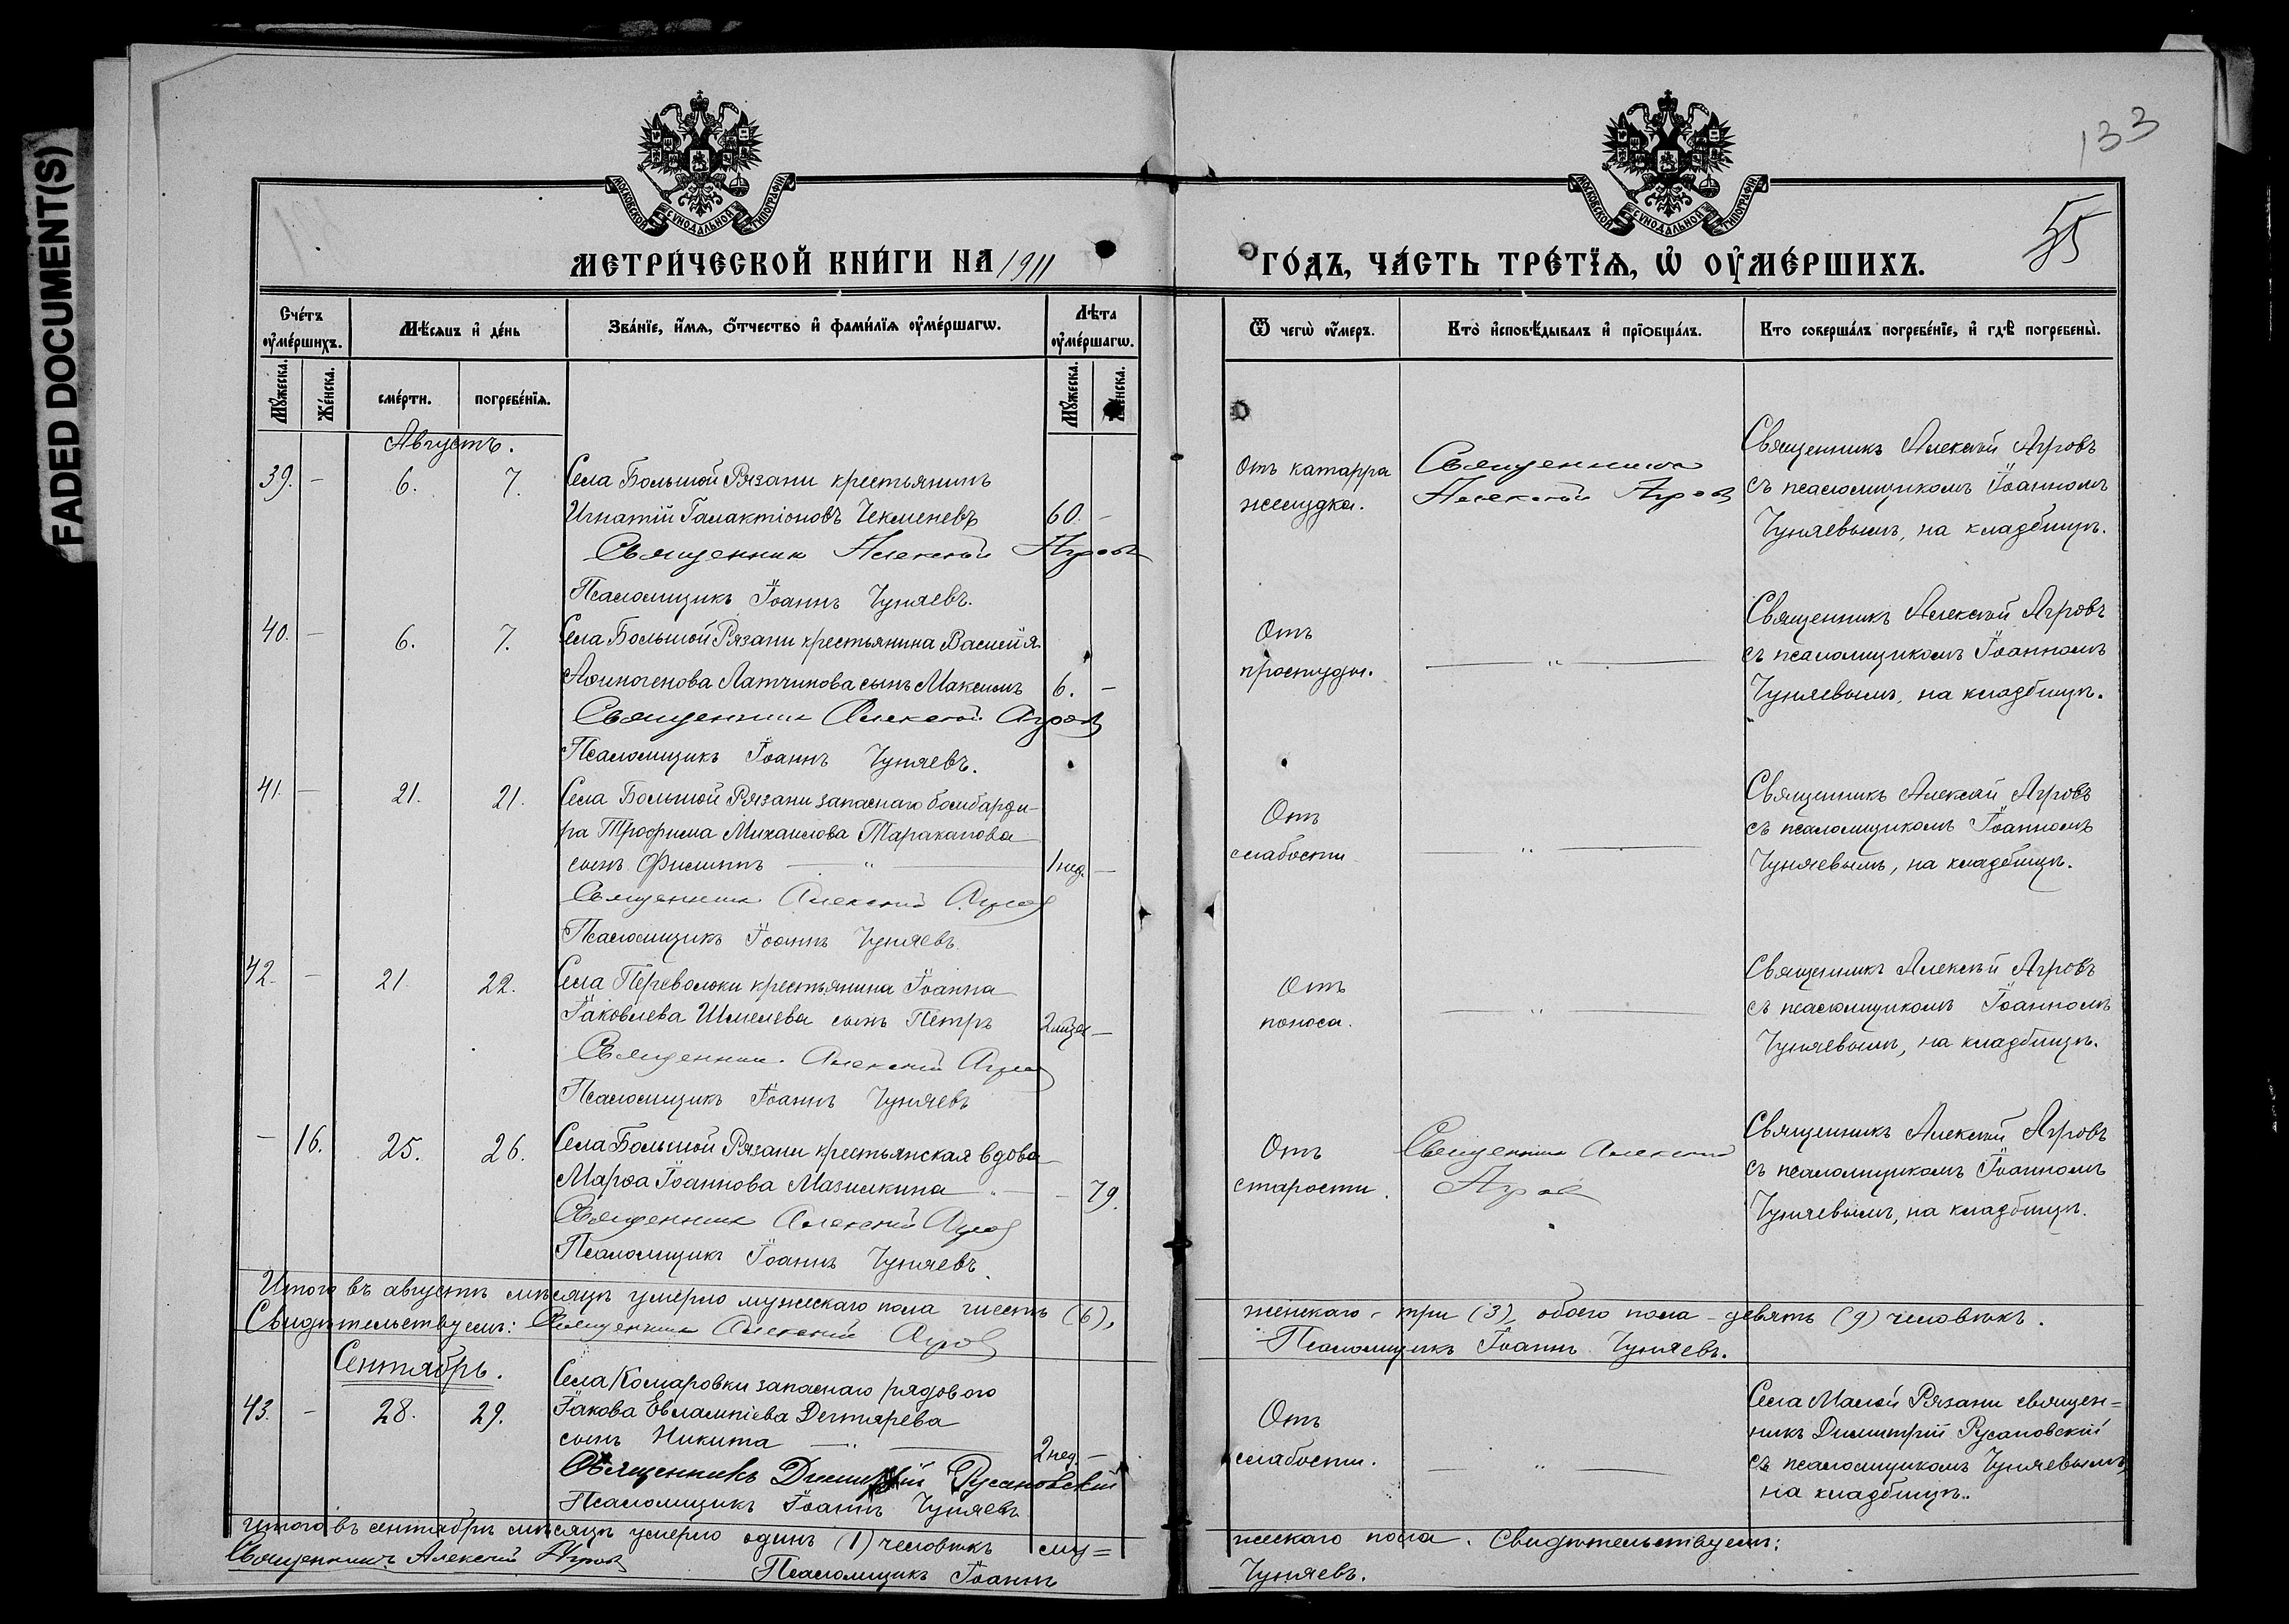 FADED DOCUMENT(S)
133
55
МОСКОВСКОЙ СѴНОДАЛЬНОЙ ТИПОГРАФІИ
МОСКОВСКОЙ СѴНОДАЛЬНОЙ ТИПОГРАФІИ
МЕТРИ́ЧЕСКОЙ КНИ́ГИ НА 1911
ГО́ДЪ, ЧА́СТЬ ТРЕ́ТЇѦ, Ѡ҆ ОУ҆МЕ́РШИХЪ.
Сче́тъ оу҆ме́ршихъ.
Мꙋ́жеска.
Же́нска.
Мѣ́сяцъ и҆ де́нь
сме́рти.
погребе́нїѧ.
Зва́нїе, и҆́мѧ, ѻ҆́тчество и҆ фами́лїѧ оу҆ме́ршагѡ.
Лѣ́та оу҆ме́ршагѡ.
Мꙋ́жеска.
Же́нска.
Ѿ чегѡ̀ оу҆́меръ.
Кто̀ и҆сповѣ́дывалъ и҆ прїѻбща́лъ.
Кто соверша́лъ погребе́нїе, и҆ гдѣ̀ погребены̀.
Августъ.
39. – 6. 7. Села Большой Рязани крестьянинъ
Игнатій Галактіоновъ Чекменевъ 60. –
Священникъ Алексѣй Агровъ
Псаломщикъ Іоаннъ Чуняевъ.
Отъ катарра
желудка.
Священникъ
Алексѣй Агровъ
Священникъ Алексѣй Агровъ
съ псаломщикомъ Іоанномъ
Чуняевымъ, на кладбищѣ.
40. – 6. 7. Села Большой Рязани крестьянина Василія
Аѳиногенова Латчинова сынъ Максимъ 6. –
Священникъ Алексѣй Агровъ
Псаломщикъ Іоаннъ Чуняевъ.
Отъ
простуды.
– " –
Священникъ Алексѣй Агровъ
съ псаломщикомъ Іоанномъ
Чуняевымъ, на кладбищѣ.
41. – 21. 21. Села Большой Рязани запаснаго бомбарди-
ра Трофима Михаилова Тараканова
сынъ Филиппъ – " – 1 нед. –
Священникъ Алексѣй Агровъ
Псаломщикъ Іоаннъ Чуняевъ
Отъ
слабости
– " –
Священникъ Алексѣй Агровъ
съ псаломщикомъ Іоанномъ
Чуняевымъ, на кладбищѣ.
42. – 21 22. Села Переволоки крестьянина Іоанна
Іаковлева Шмелева сынъ Петръ 2 мѣся –
Священникъ Алексѣй Агровъ
Псаломщикъ Іоаннъ Чуняевъ
Отъ
поноса.
– " –
Священникъ Алексѣй Агровъ
съ псаломщикомъ Іоанномъ
Чуняевымъ, на кладбищѣ.
– 16. 25. 26. Села Большой Рязани крестьянская вдова
Марѳа Іоаннова Мазилкина – " – – 79.
Священникъ Алексѣй Агровъ
Псаломщикъ Іоаннъ Чуняевъ.
Отъ
старости.
Священникъ Алексѣй
Агровъ
Священникъ Алексѣй Агровъ
съ псаломщикомъ Іоанномъ
Чуняевымъ, на кладбищѣ.
Итого въ августѣ мѣсяцѣ умерло мужескаго пола шесть (6),
женскаго – три (3), обоего пола – девять (9) человѣкъ.
Свидѣтельствуемъ: Священникъ Алексѣй Агровъ
Псаломщикъ Іоаннъ Чуняевъ.
Сентябрь.
43. – 28. 29. Села Комаровки запаснаго рядового
Іакова Евлампіева Дегтярева
сынъ Никита – " – 2 нед –
Священникъ Димитрій Русановскій
Псаломщикъ Іоаннъ Чуняевъ
Отъ
слабости.
– " –
Села Малой Рязани священ=
никъ Димитрій Русановскій
съ псаломщикомъ Чуняевымъ,
на кладбищѣ.
Итого въ сентябрѣ мѣсяцѣ умерло одинъ (1) человѣкъ му=
жескаго пола. Свидѣтельствуемъ:
Священникъ Алексѣй Агровъ
Псаломщикъ Іоаннъ
Чуняевъ.